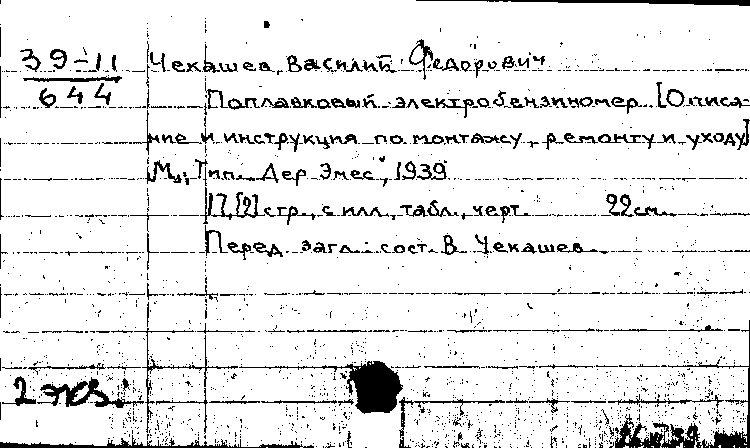 39-11
644
Чекашев, Василий Федорович
Поплавковый электробензиномер. [Описа-
ние и инструкция по монтажу, ремонту и уходу]
М., Тип. "Дер Эмес", 1939
17, [2] стр., с илл., табл., черт. 22 см.
Перед загл.: сост. В. Чекашев.
2 экз.